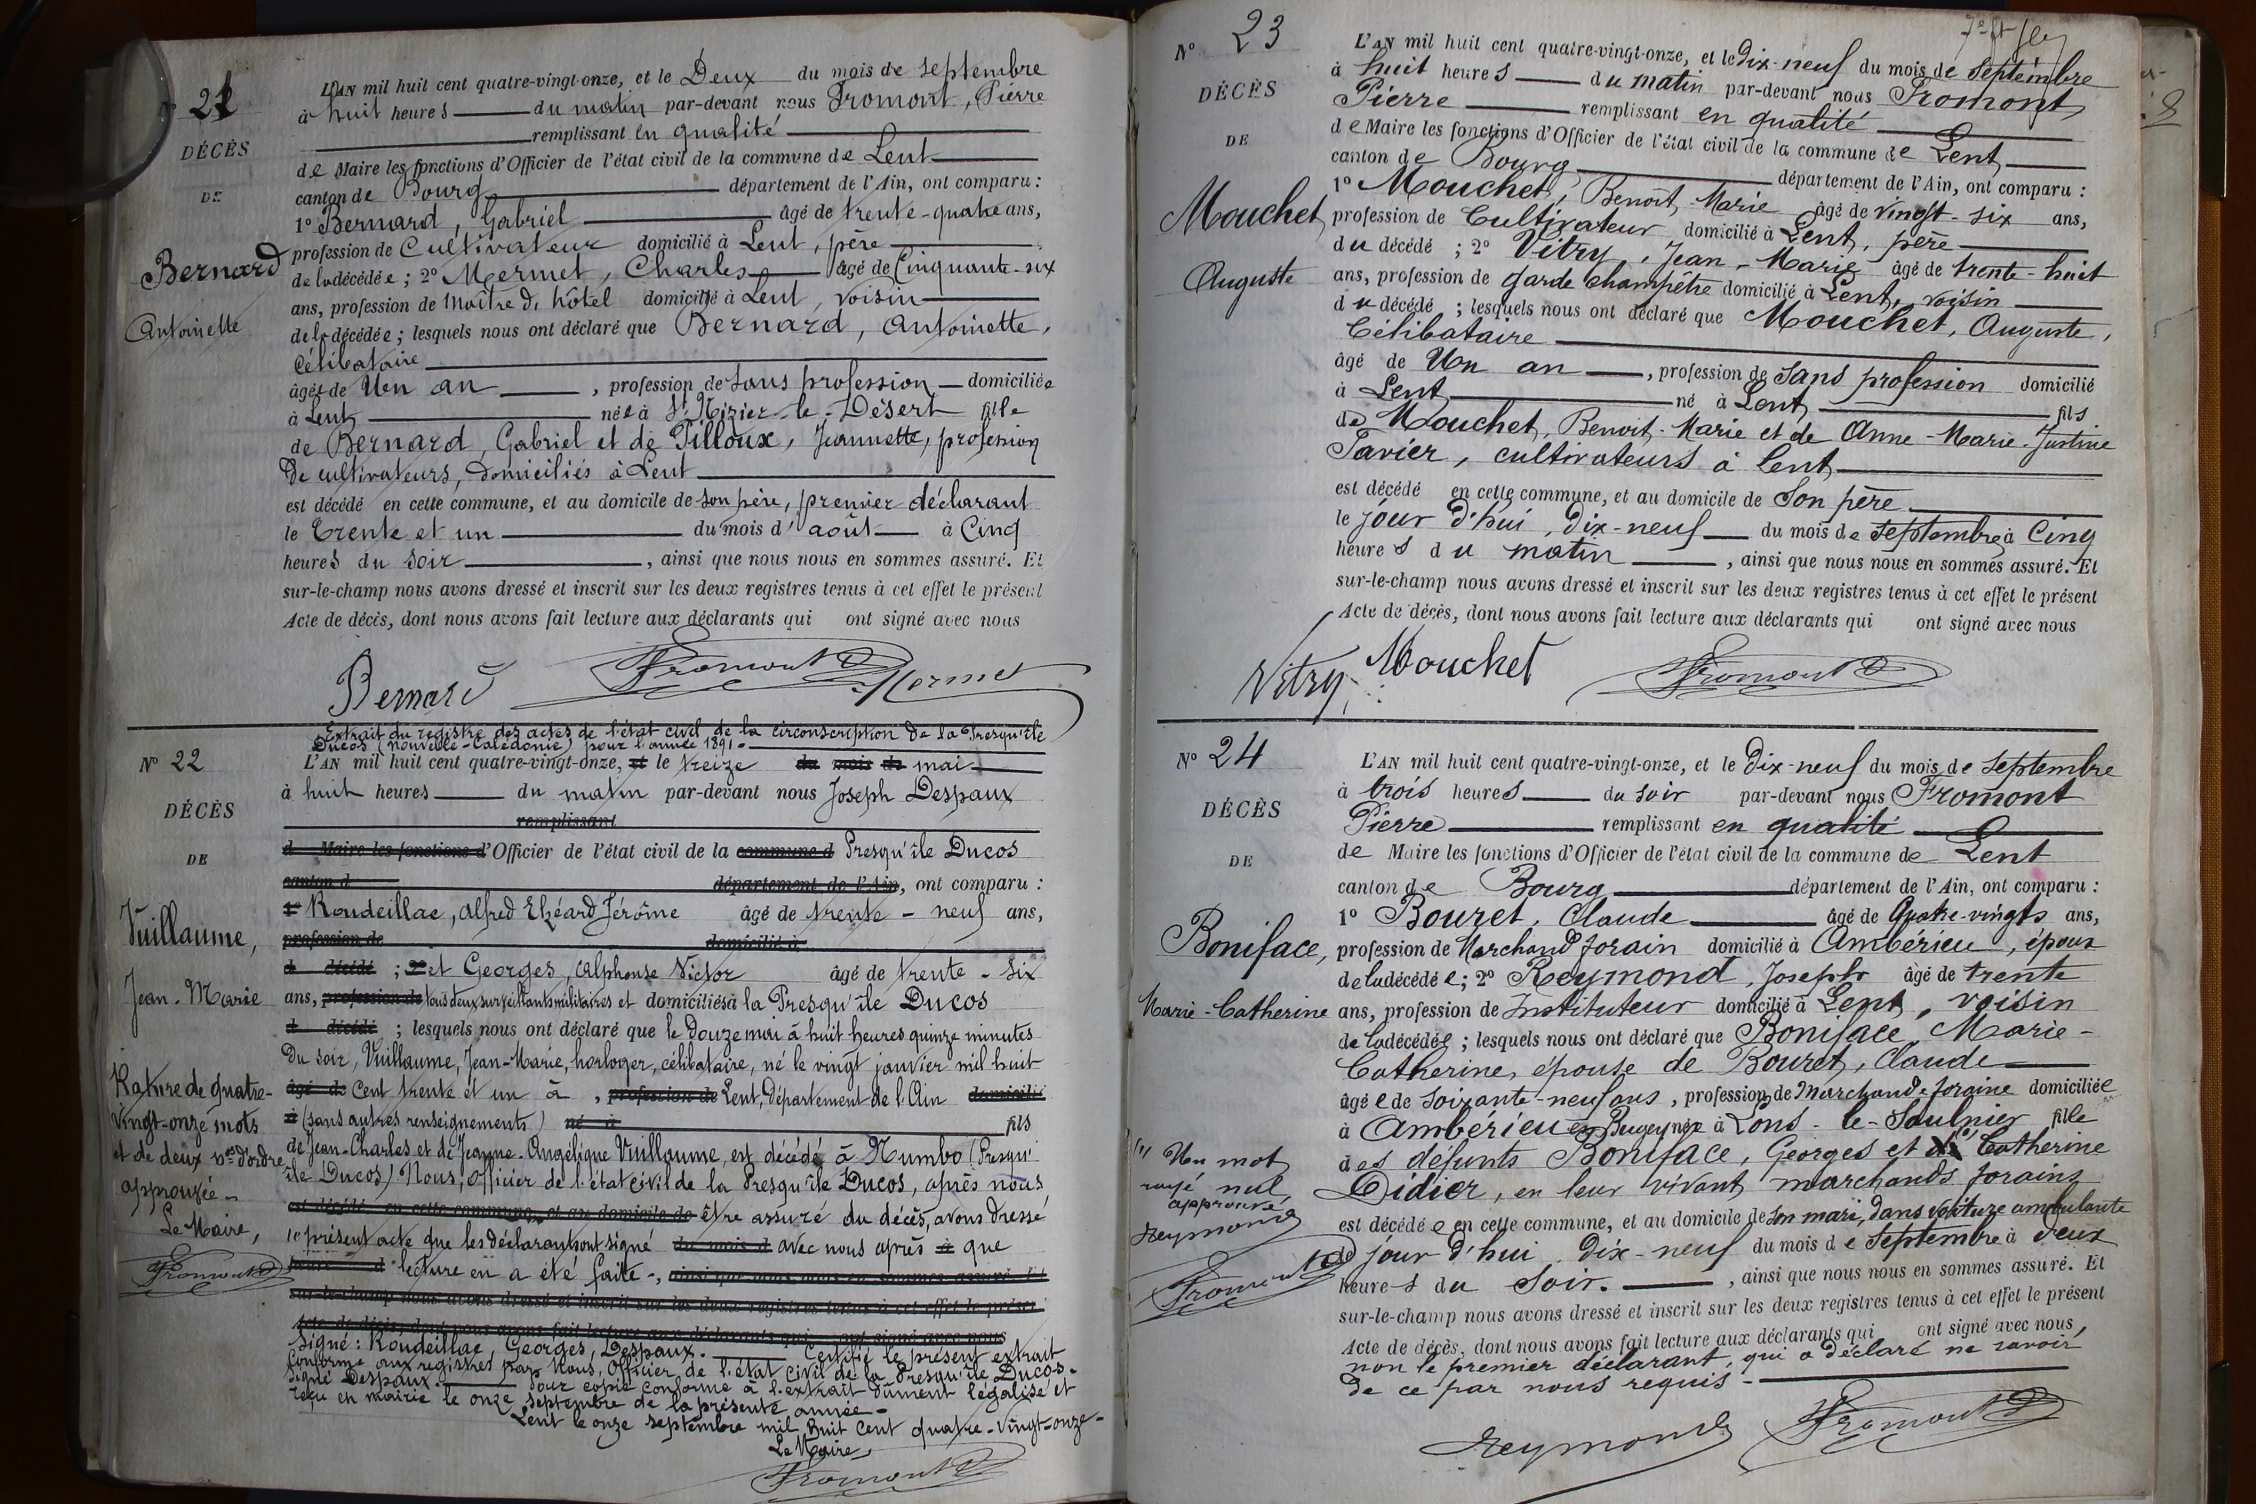 N° 21
DÉCÈS
DE
Bernard
Antoinette
L'AN mil huit cent quatre-vingt-onze, et le Deux du mois de septembre
à huit heures du matin par-devant nous Fromont, Pierre
remplissant en qualité
de Maire les fonctions d'Officier de l'état civil de la commune de Lent
canton de Bourg département de l'Ain, ont comparu :
1° Bernard, Gabriel âgé de trente-quatre ans,
profession de Cultivateur domicilié à Lent, père
de la décédée ; 2° Mermet, Charles âgé de Cinquante-six
ans, profession de Maître d'hôtel domicilié à Lent, voisin
de la décédée ; lesquels nous ont déclaré que Bernard, Antoinette,
Célibataire
âgée de Un an , profession de sans profession domiciliée
à Lent née à St Nizier-le-Désert fille
de Bernard, Gabriel et de Pilloux, Jeannette, profession
de cultivateurs, domiciliés à Lent
est décédé en cette commune, et au domicile de son père, premier déclarant
le trente et un du mois d'août à Cinq
heures du soir , ainsi que nous nous en sommes assuré. Et
sur-le-champ nous avons dressé et inscrit sur les deux registres tenus à cet effet le présent
Acte de décès, dont nous avons fait lecture aux déclarants qui ont signé avec nous
Bernard Fromont Mermet
N° 22
DÉCÈS
DE
Vuillaume,
Jean-Marie
Rature de quatre-
vingt-onze mots
et de deux nos d'ordre
approuvée
Le Maire,
Fromont
Extrait du registre des actes de l'état civil de la circonscription de la Presqu'île
Ducos (Nouvelle-Calédonie) pour l'année 1891.
L'AN mil huit cent quatre-vingt-onze, et le treize du mois de mai
à huit heures du matin par-devant nous Joseph Despaux
remplissant
d Maire les fonctions d'Officier de l'état civil de la commune d Presqu'île Ducos
canton d département de l'Ain, ont comparu :
1° Roudeillac, Alfred Elzéard Jérôme âgé de trente-neuf ans,
profession de domicilié à
d décédé ; 2° et Georges, Alphonse Victor âgé de trente-six
ans, profession de tous deux surveillants militaires et domiciliés à la Presqu'île Ducos
d décédé ; lesquels nous ont déclaré que le douze mai à huit heures quinze minutes
du soir, Vuillaume, Jean-Marie, horloger, célibataire, né le vingt janvier mil huit
âgé de cent trente et un à , profession de Lent, département de l'Ain domicilié
à (sans autres renseignements) né à fils
de Jean-Charles et de Jeanne-Angélique Vuillaume, est décédé à Numbo (Presqu'
île Ducos) Nous, officier de l'état civil de la Presqu'île Ducos, après nous
est décédé en cette commune, et au domicile de être assuré du décès, avons dressé
le présent acte que les déclarants ont signé du mois d avec nous après à que
heure d lecture en a été faite-, ainsi que nous nous en sommes assuré. Et
sur-le-champ nous avons dressé et inscrit sur les deux registres tenus à cet effet le présent
Acte de décès, dont nous avons fait lecture aux déclarants qui ont signé avec nous
Signé : Roudeillac, Georges, Despaux. Certifié le présent extrait
conforme aux registres par nous, officier de l'état civil de la Presqu'île Ducos.
Signé Despaux. Pour copie conforme à l'extrait dûment légalisé et
reçu en mairie le onze septembre de la présente année
Lent le onze septembre mil huit cent quatre-vingt-onze-
Le Maire,
Fromont
N° 23
DÉCÈS
DE
Mouchet
Auguste
L'AN mil huit cent quatre-vingt-onze, et le dix-neuf du mois de septembre
à huit heures du matin par-devant nous Fromont,
Pierre remplissant en qualité
de Maire les fonctions d'Officier de l'état civil de la commune de Lent
canton de Bourg département de l'Ain, ont comparu :
1° Mouchet, Benoît-Marie âgé de vingt-six ans,
profession de Cultivateur domicilié à Lent, père
du décédé ; 2° Vitry, Jean-Marie âgé de trente-huit
ans, profession de garde champêtre domicilié à Lent, voisin
du décédé ; lesquels nous ont déclaré que Mouchet, Auguste,
Célibataire
âgé de Un an , profession de sans profession domicilié
à Lent né à Lent fils
de Mouchet, Benoit-Marie et de Anne-Marie-Justine
Tavier, cultivateurs à Lent
est décédé en cette commune, et au domicile de son père
le jour d'hui, dix-neuf du mois de septembre à Cinq
heures du matin , ainsi que nous nous en sommes assuré. Et
sur-le-champ nous avons dressé et inscrit sur les deux registres tenus à cet effet le présent
Acte de décès, dont nous avons fait lecture aux déclarants qui ont signé avec nous
Vitry Mouchet Fromont
N° 24
DÉCÈS
DE
Boniface,
Marie-Catherine
(1) Un mot
rayé nul,
approuvé
Reymond
Fromont
L'AN mil huit cent quatre-vingt-onze, et le dix-neuf du mois de septembre
à trois heures du soir par-devant nous Fromont
Pierre remplissant en qualité
de Maire les fonctions d'Officier de l'état civil de la commune de Lent
canton de Bourg département de l'Ain, ont comparu :
1° Bouret, Claude âgé de Quatre-vingts ans,
profession de Marchand forain domicilié à Ambérieu, époux
de la décédée ; 2° Reymond, Joseph âgé de trente
ans, profession de Instituteur domicilié à Lent, voisin
de la décédée ; lesquels nous ont déclaré que Boniface Marie-
Catherine, épouse de Bouret, Claude
âgée de soixante-neuf ans , profession de Marchande foraine domiciliée
à Ambérieu en Bugey née à Lons-le-Saulnier fille
des défunts Boniface, Georges et (1) Catherine
Didier, en leur vivant marchands forains
est décédée en cette commune, et au domicile de son mari, dans voiture ambulante
le jour d'hui dix-neuf du mois de septembre à deux
heures du soir. , ainsi que nous nous en sommes assuré. Et
sur-le-champ nous avons dressé et inscrit sur les deux registres tenus à cet effet le présent
Acte de décès, dont nous avons fait lecture aux déclarants qui ont signé avec nous,
non le premier déclarant, qui a déclaré ne savoir
de ce par nous requis-
Reymond Fromont